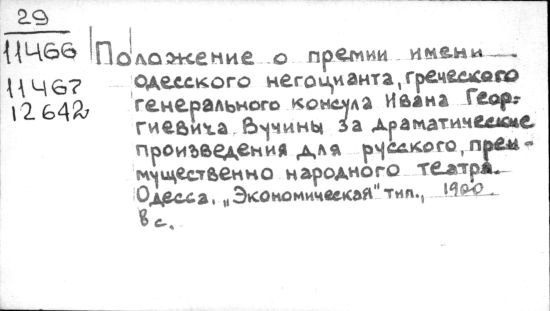 29
11466 Положение о премии имени
11467 одесского негоцианта, греческого
12642 генерального консула Ивана Геор-
гиевича Вучины за драматические
произведения для русского, преи-
мущественно народного театра.
Одесса, „Экономическая" тип., 1900.
8 с.